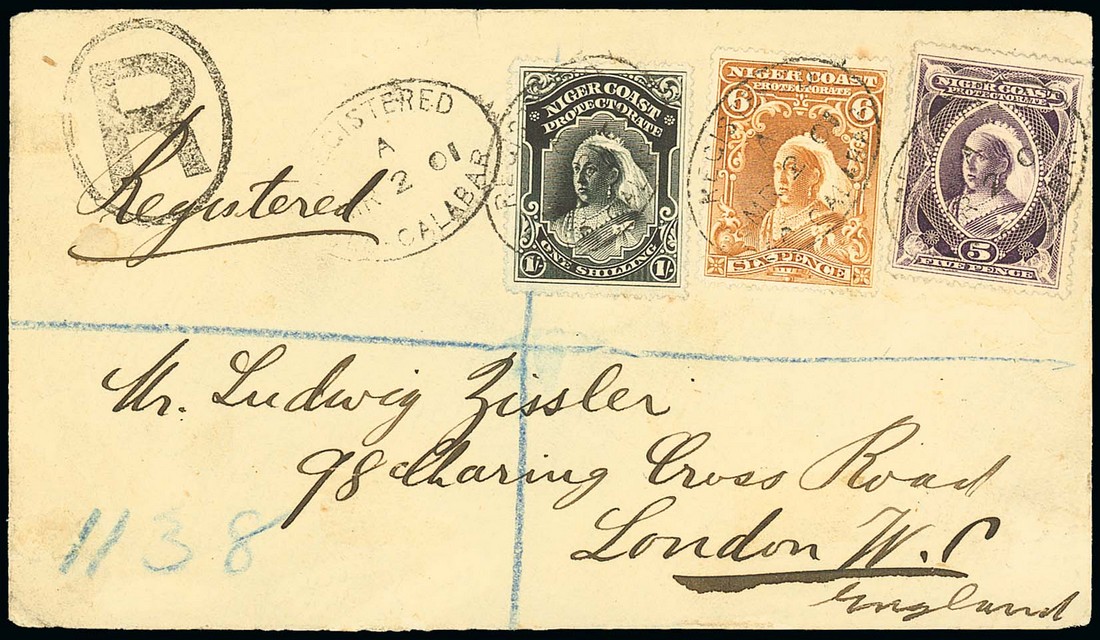 R
Registered
REGISTERED
A
2 01
CALABAR
NIGER COAST
PROTECTORATE
ONE SHILLING
1/- 1/-
NIGER COAST
PROTECTORATE
6 6
SIX-PENCE
NIGER COAST
PROTECTORATE
5
FIVE PENCE
Mr. Ludwig Zissler
98 Charing Cross Road
London W.C
England
1138